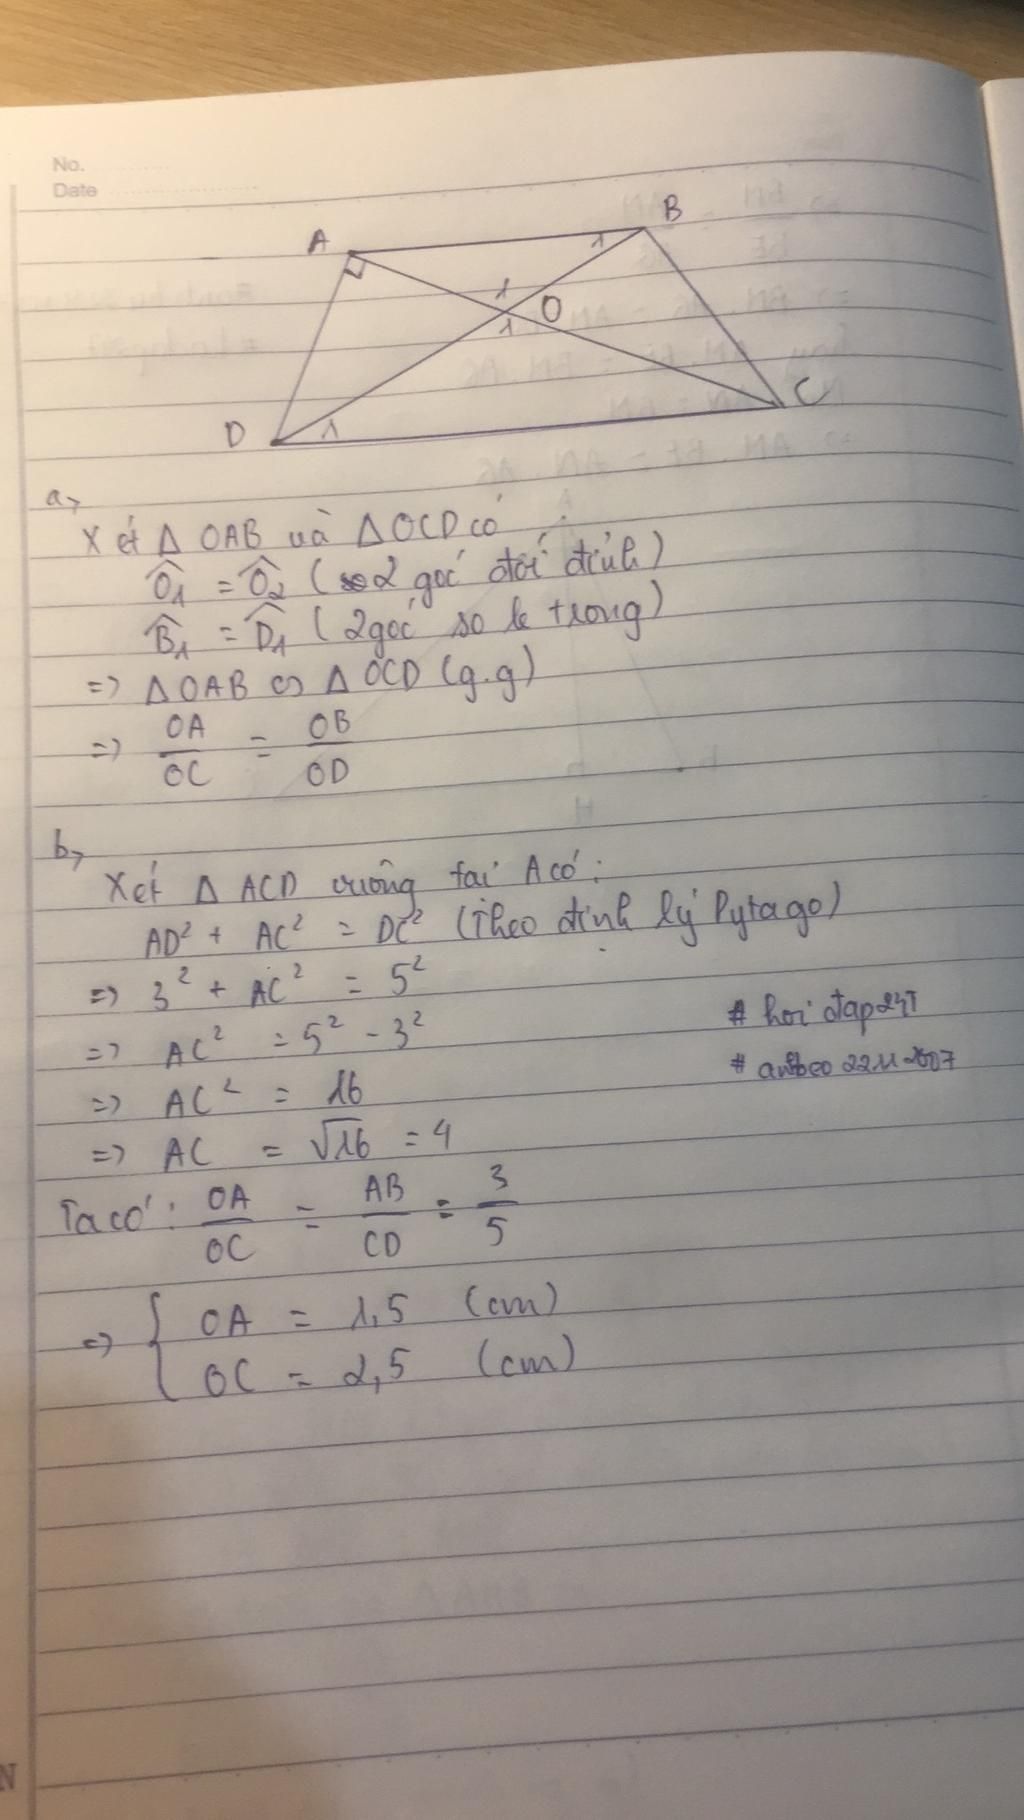 No.
Date
A
B
1
1
O
1
D
1
C
a,
Xét Δ OAB và Δ OCD có
Ô1 = Ô2 (2 góc đối đỉnh)
B̂1 = D̂1 (2 góc so le trong)
=> Δ OAB ∽ Δ OCD (g.g)
=> OA/OC = OB/OD
b,
Xét Δ ACD vuông tại A có:
AD² + AC² = DC² (Theo định lý Pytago)
=> 3² + AC² = 5²
=> AC² = 5² - 3²
# hoi đap 247
=> AC² = 16
=> AC = √16 = 4
Ta có: OA/OC = AB/CD = 3/5
=> { OA = 1,5 (cm)
OC = 2,5 (cm)
N